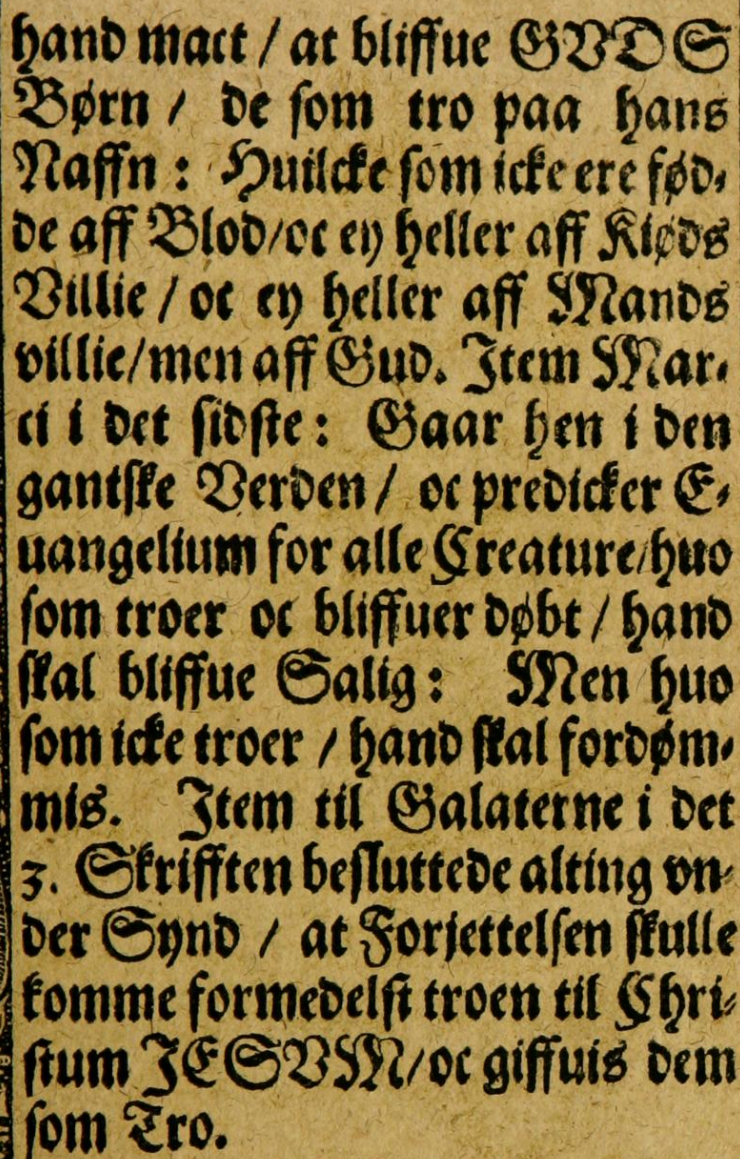 hand mact / at bliffue GVDS
Børn / de som tro paa hans
Naffn : Huilcke som icke ere fød-
de aff Blod/oc ey heller aff Kiøds
Villie / oc ey heller aff Mands
villie/men aff Gud. Item Mar-
ci i det sidste : Gaar hen i den
gantske Verden / oc predicker E-
uangelium for alle Creature/huo
som troer oc bliffuer døbt / hand
skal bliffue Salig : Men huo
som icke troer / hand skal fordøm-
mis. Item til Galaterne i det
3. Skrifften besluttede alting vn-
der Synd / at Forjettelsen skulle
komme formedelst troen til Chri-
stum JESVM/oc giffuis dem
som Tro.